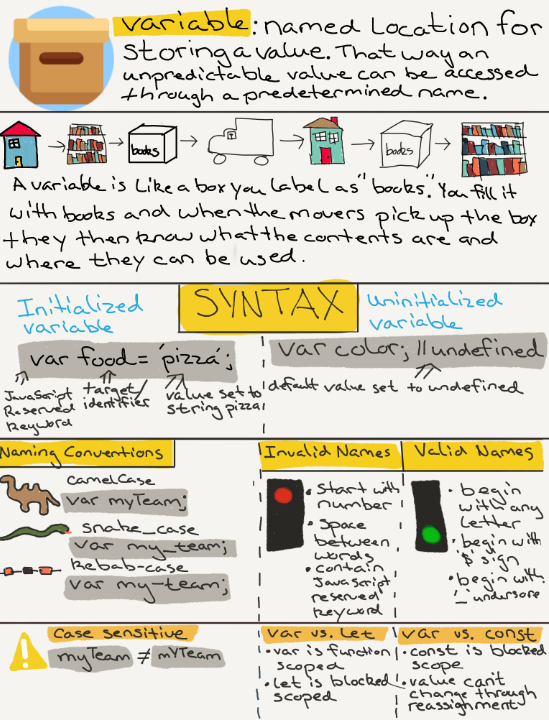 variable: named location for
storing a value. That way an
unpredictable value can be accessed
through a predetermined name.
books
books
A variable is like a box you label as "books." You fill it
with books and when the movers pick up the box
they then know what the contents are and
where they can be used.
SYNTAX
Initialized
variable
var food = 'pizza';
JavaScript
Reserved
keyword
target/
identifier
value set to
string pizza
Uninitialized
variable
var color; //undefined
default value set to undefined
Naming Conventions
camelCase
var myTeam;
snake_case
var my_team;
kebab-case
var my-team;
Invalid Names
• Start with
number
• Space
between
words
• contain
JavaScript
reserved
keyword
Valid Names
• begin
with any
letter
• begin with
'$' sign
• begin with
'_' undersore
Case sensitive
myTeam ≠ mYTeam
var vs. let
• var is function
scoped
• let is blocked
scoped
var vs. const
• const is blocked
scope
• value can't
change through
reassignment